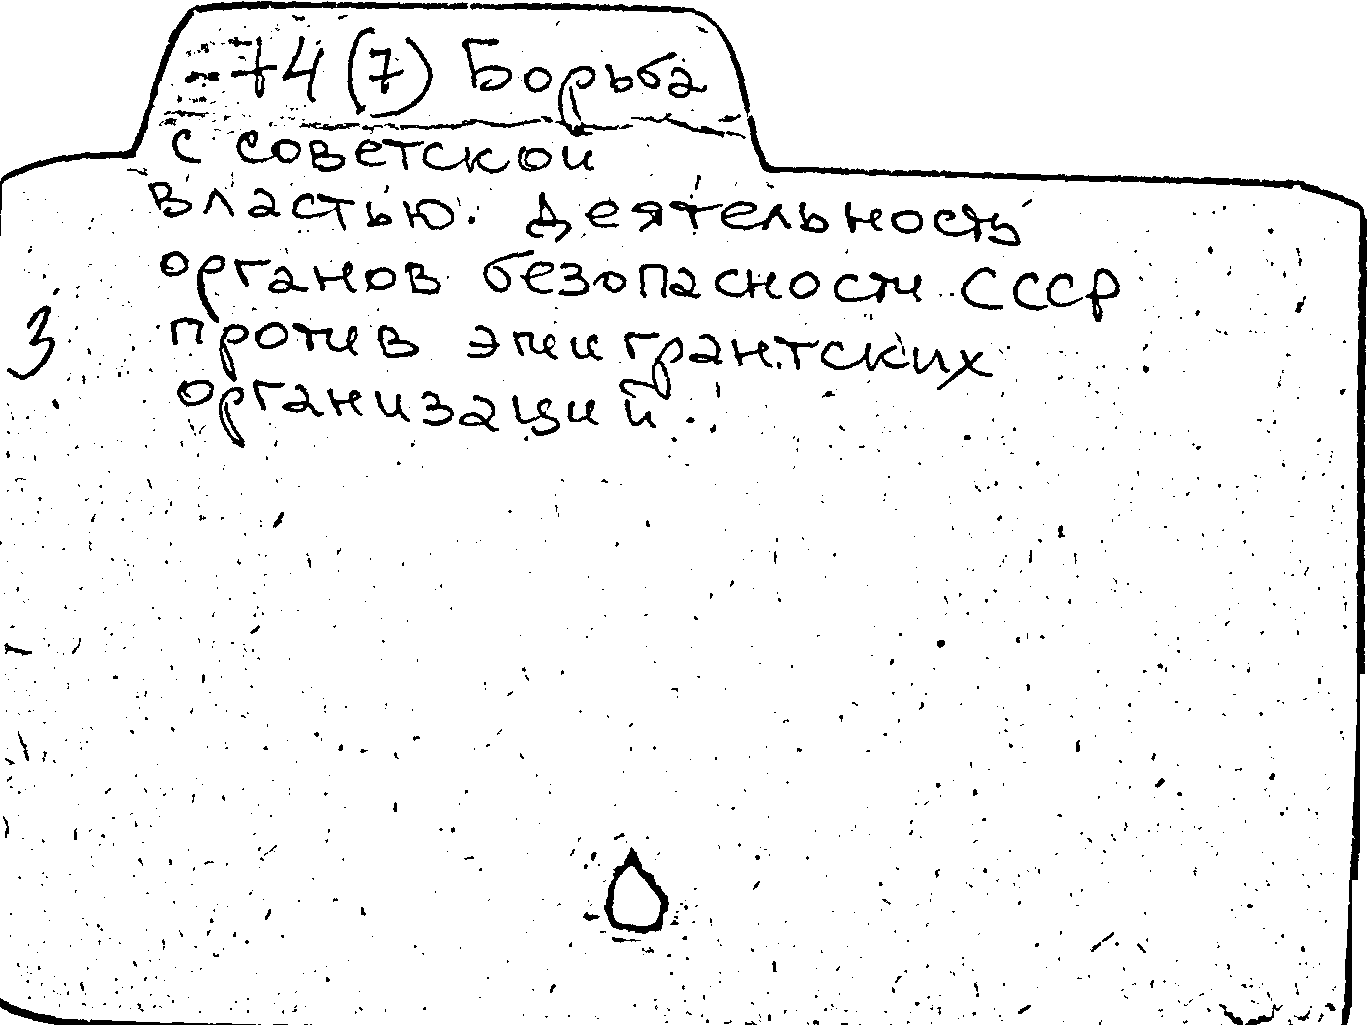 -74(7) Борьба
с советской
властью. Деятельность
органов безопасности СССР
3 против эмигрантских
организаций.